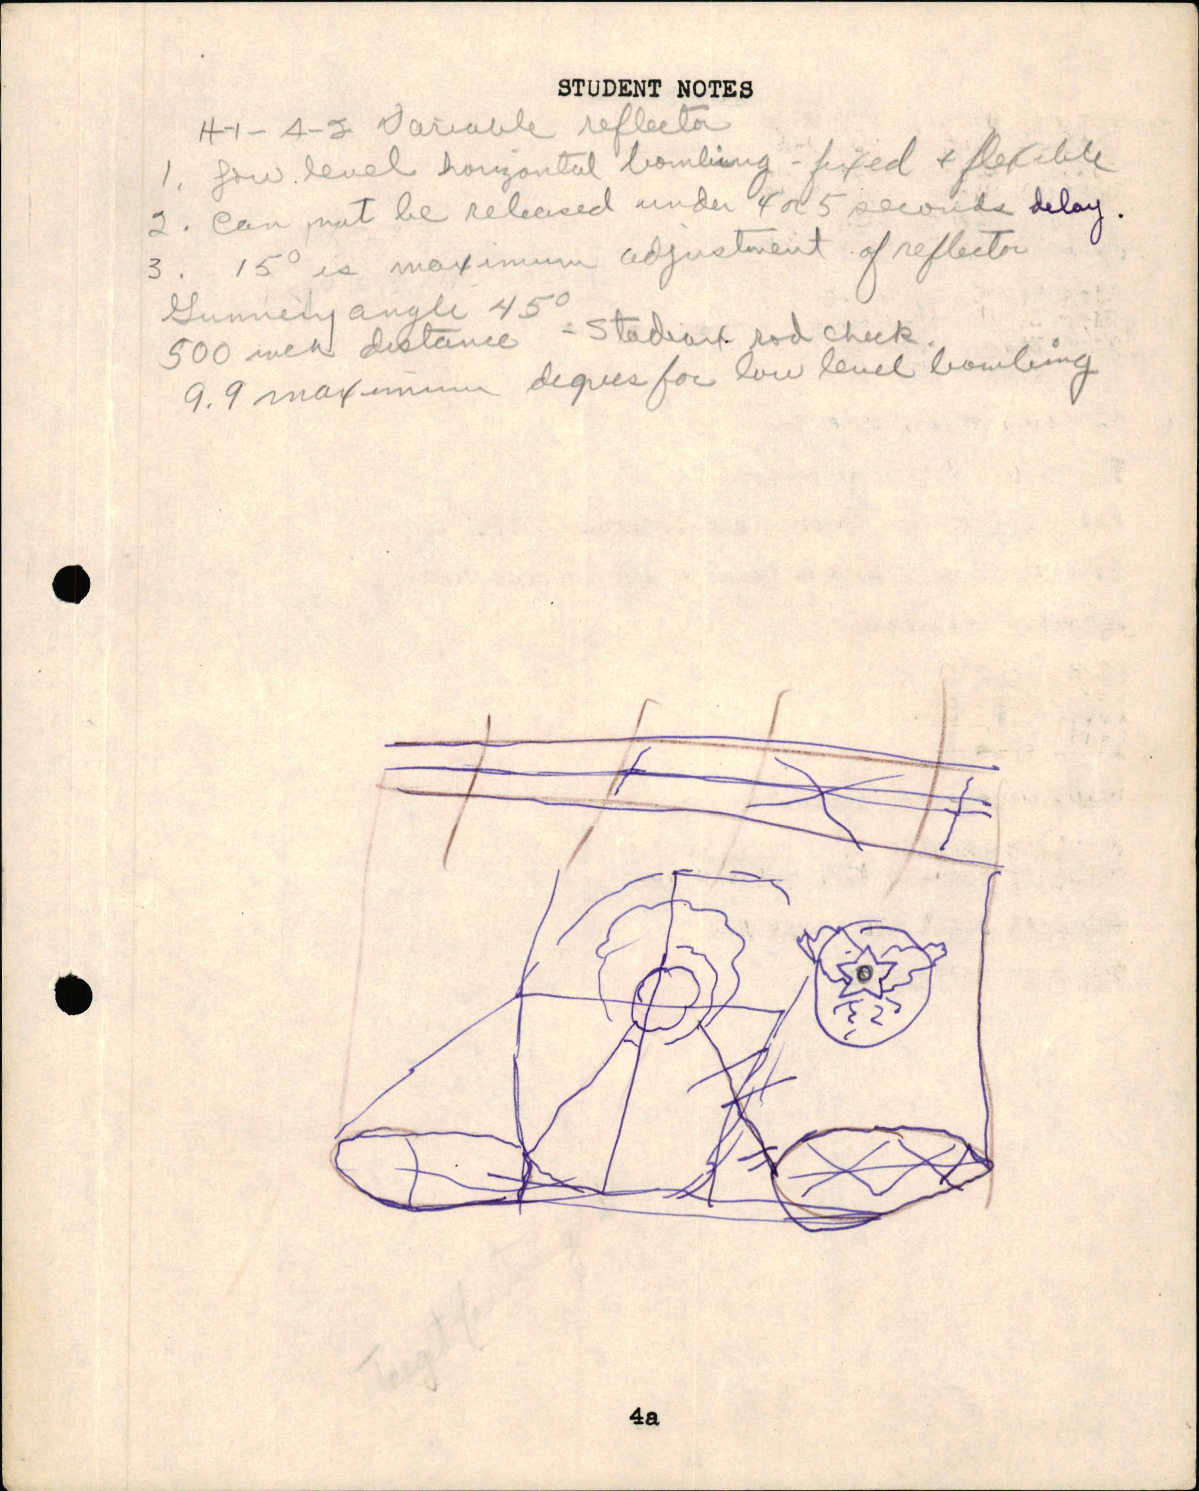 STUDENT NOTES
Variable reflector
1. Low level horizontal bombing - fixed + flexible
2. Can not be released under 4 or 5 seconds delay.
3. 15° is maximum adjustment of reflector
Gunnery angle 45°
500 inch distance - rod check.
9.9 maximum degrees for low level bombing
4a